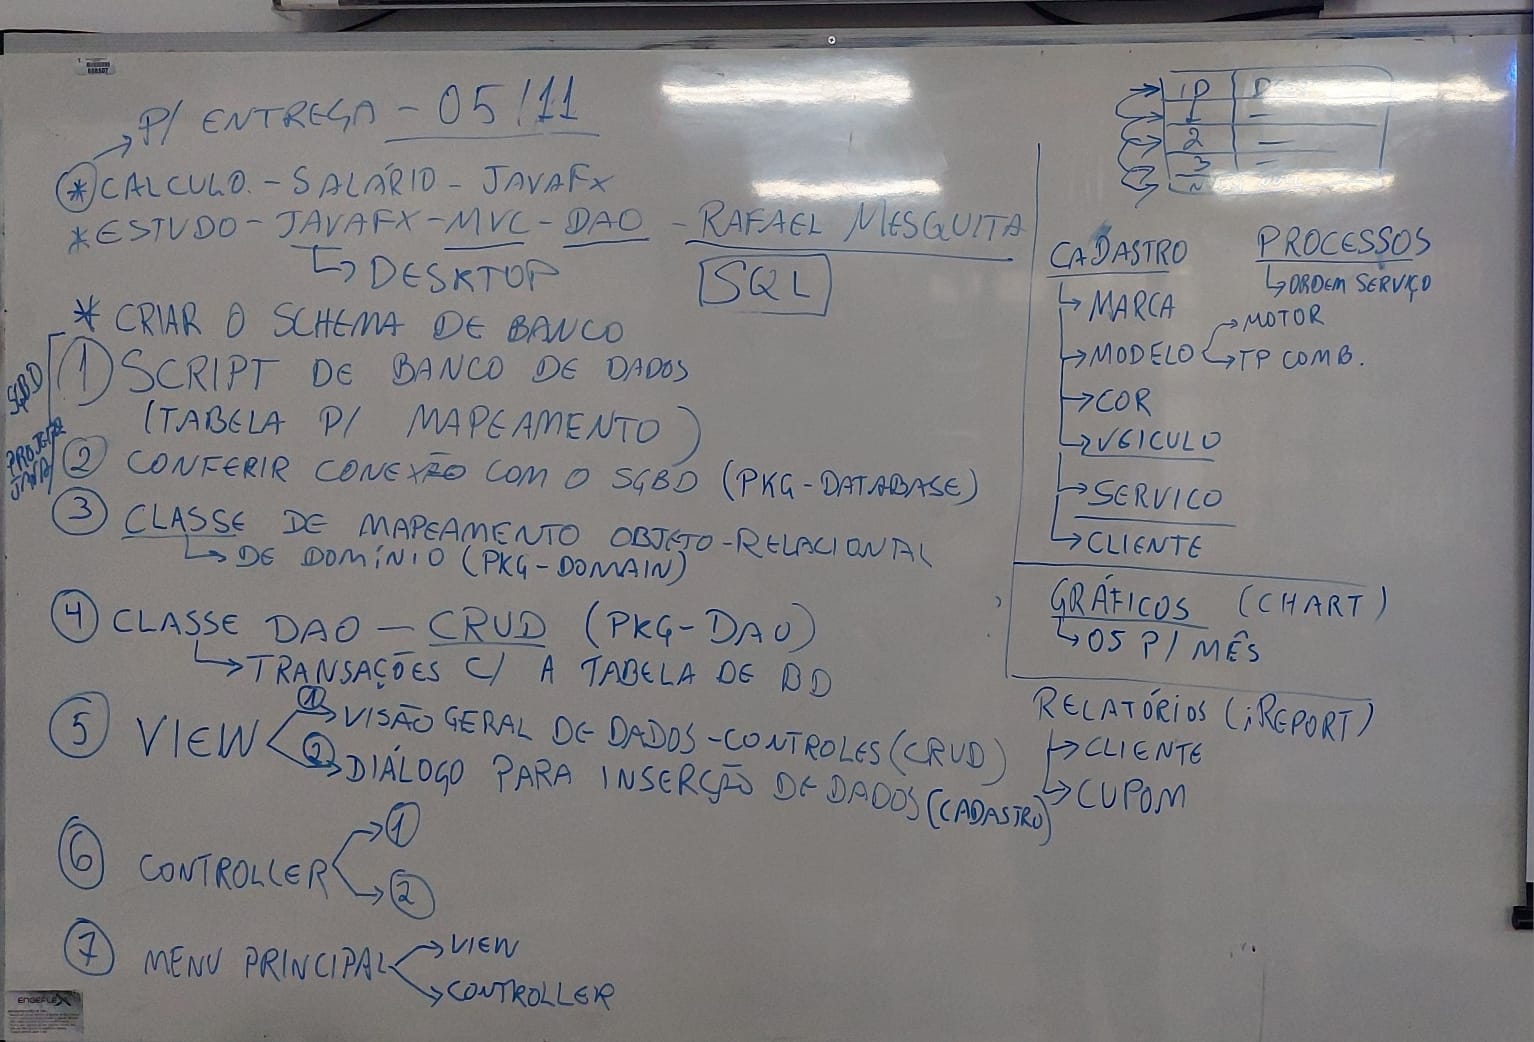 P/ ENTREGA - 05/11
* CALCULO - SALÁRIO - JAVAFX
* ESTUDO - JAVAFX - MVC - DAO - RAFAEL MESQUITA
DESKTOP
SQL
* CRIAR O SCHEMA DE BANCO
SGBD
1 SCRIPT DE BANCO DE DADOS
(TABELA P/ MAPEAMENTO)
PROJETO
JAVA
2 CONFERIR CONEXÃO COM O SGBD (PKG-DATABASE)
3 CLASSE DE MAPEAMENTO OBJETO-RELACIONAL
DE DOMÍNIO (PKG-DOMAIN)
4 CLASSE DAO - CRUD (PKG-DAO)
TRANSAÇÕES C/ A TABELA DE BD
5 VIEW
1 VISÃO GERAL DE DADOS - CONTROLES (CRUD)
2 DIÁLOGO PARA INSERÇÃO DE DADOS (CADASTRO)
6 CONTROLLER
1
2
7 MENU PRINCIPAL
VIEW
CONTROLLER
ID
1
2
3
N
CADASTRO
MARCA
MODELO
MOTOR
TP COMB.
COR
VEICULO
SERVICO
CLIENTE
PROCESSOS
ORDEM SERVIÇO
GRÁFICOS (CHART)
OS P/ MÊS
RELATÓRIOS (iREPORT)
CLIENTE
CUPOM
ENGEFLEX